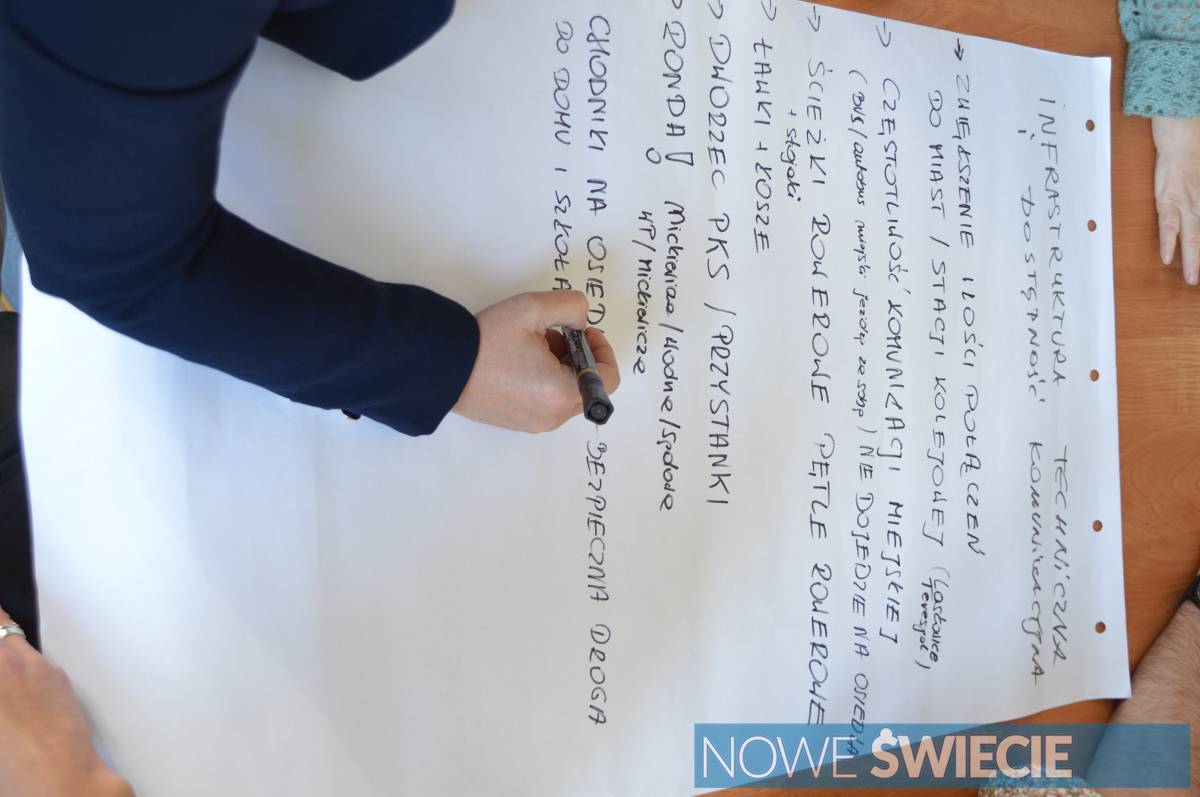 INFRASTRUKTURA TECHNICZNA
DOSTĘPNOŚĆ KOMUNIKACYJNA
→ ZWIĘKSZENIE ILOŚCI POŁĄCZEŃ
DO MIAST / STACJI KOLEJOWEJ (Laskowice
Terespol)
→ CZĘSTOTLIWOŚĆ KOMUNIKACJI MIEJSKIEJ
(BUS/autobus miejski jeżdżą ze sobą) NIE DOJEDZIE NA OSIEDLA
→ ŚCIEŻKI ROWEROWE PĘTLE ROWEROWE
+ stojaki
→ ŁAWKI + KOSZE
→ DWORZEC PKS / PRZYSTANKI
→ RONDA! Mickiewicza/Wodna/Sądowa
WP/Mickiewicza
CHODNIKI NA OSIEDL - BEZPIECZNA DROGA
DO DOMU I SZKOŁA
NOWE ŚWIECIE